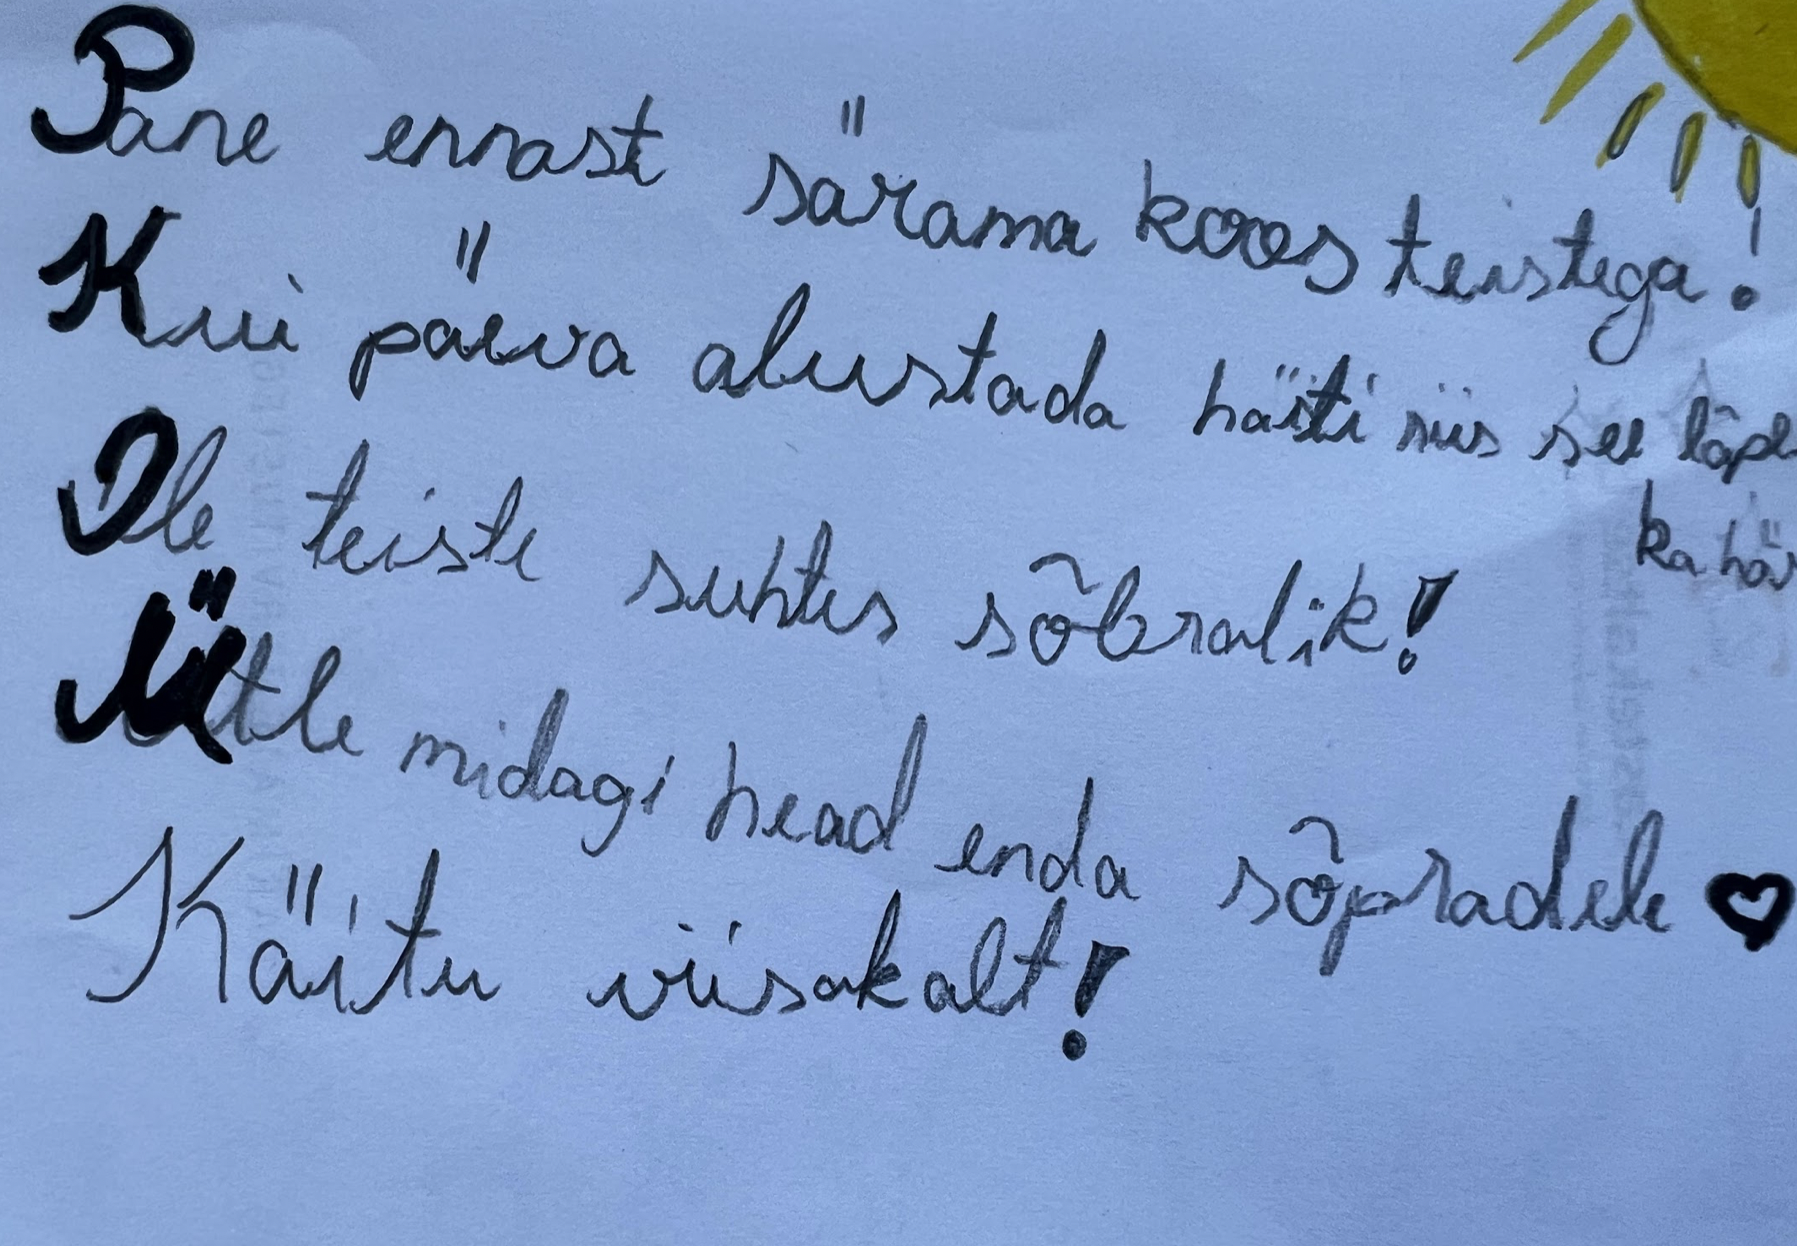 Pane ennast särama koos teistega!
Kui päeva alustada hästi siis see lõpe
ka häs
Ole teiste suhtes sõbralik!
Ütle midagi head enda sõpradele
Käitu viisakalt!